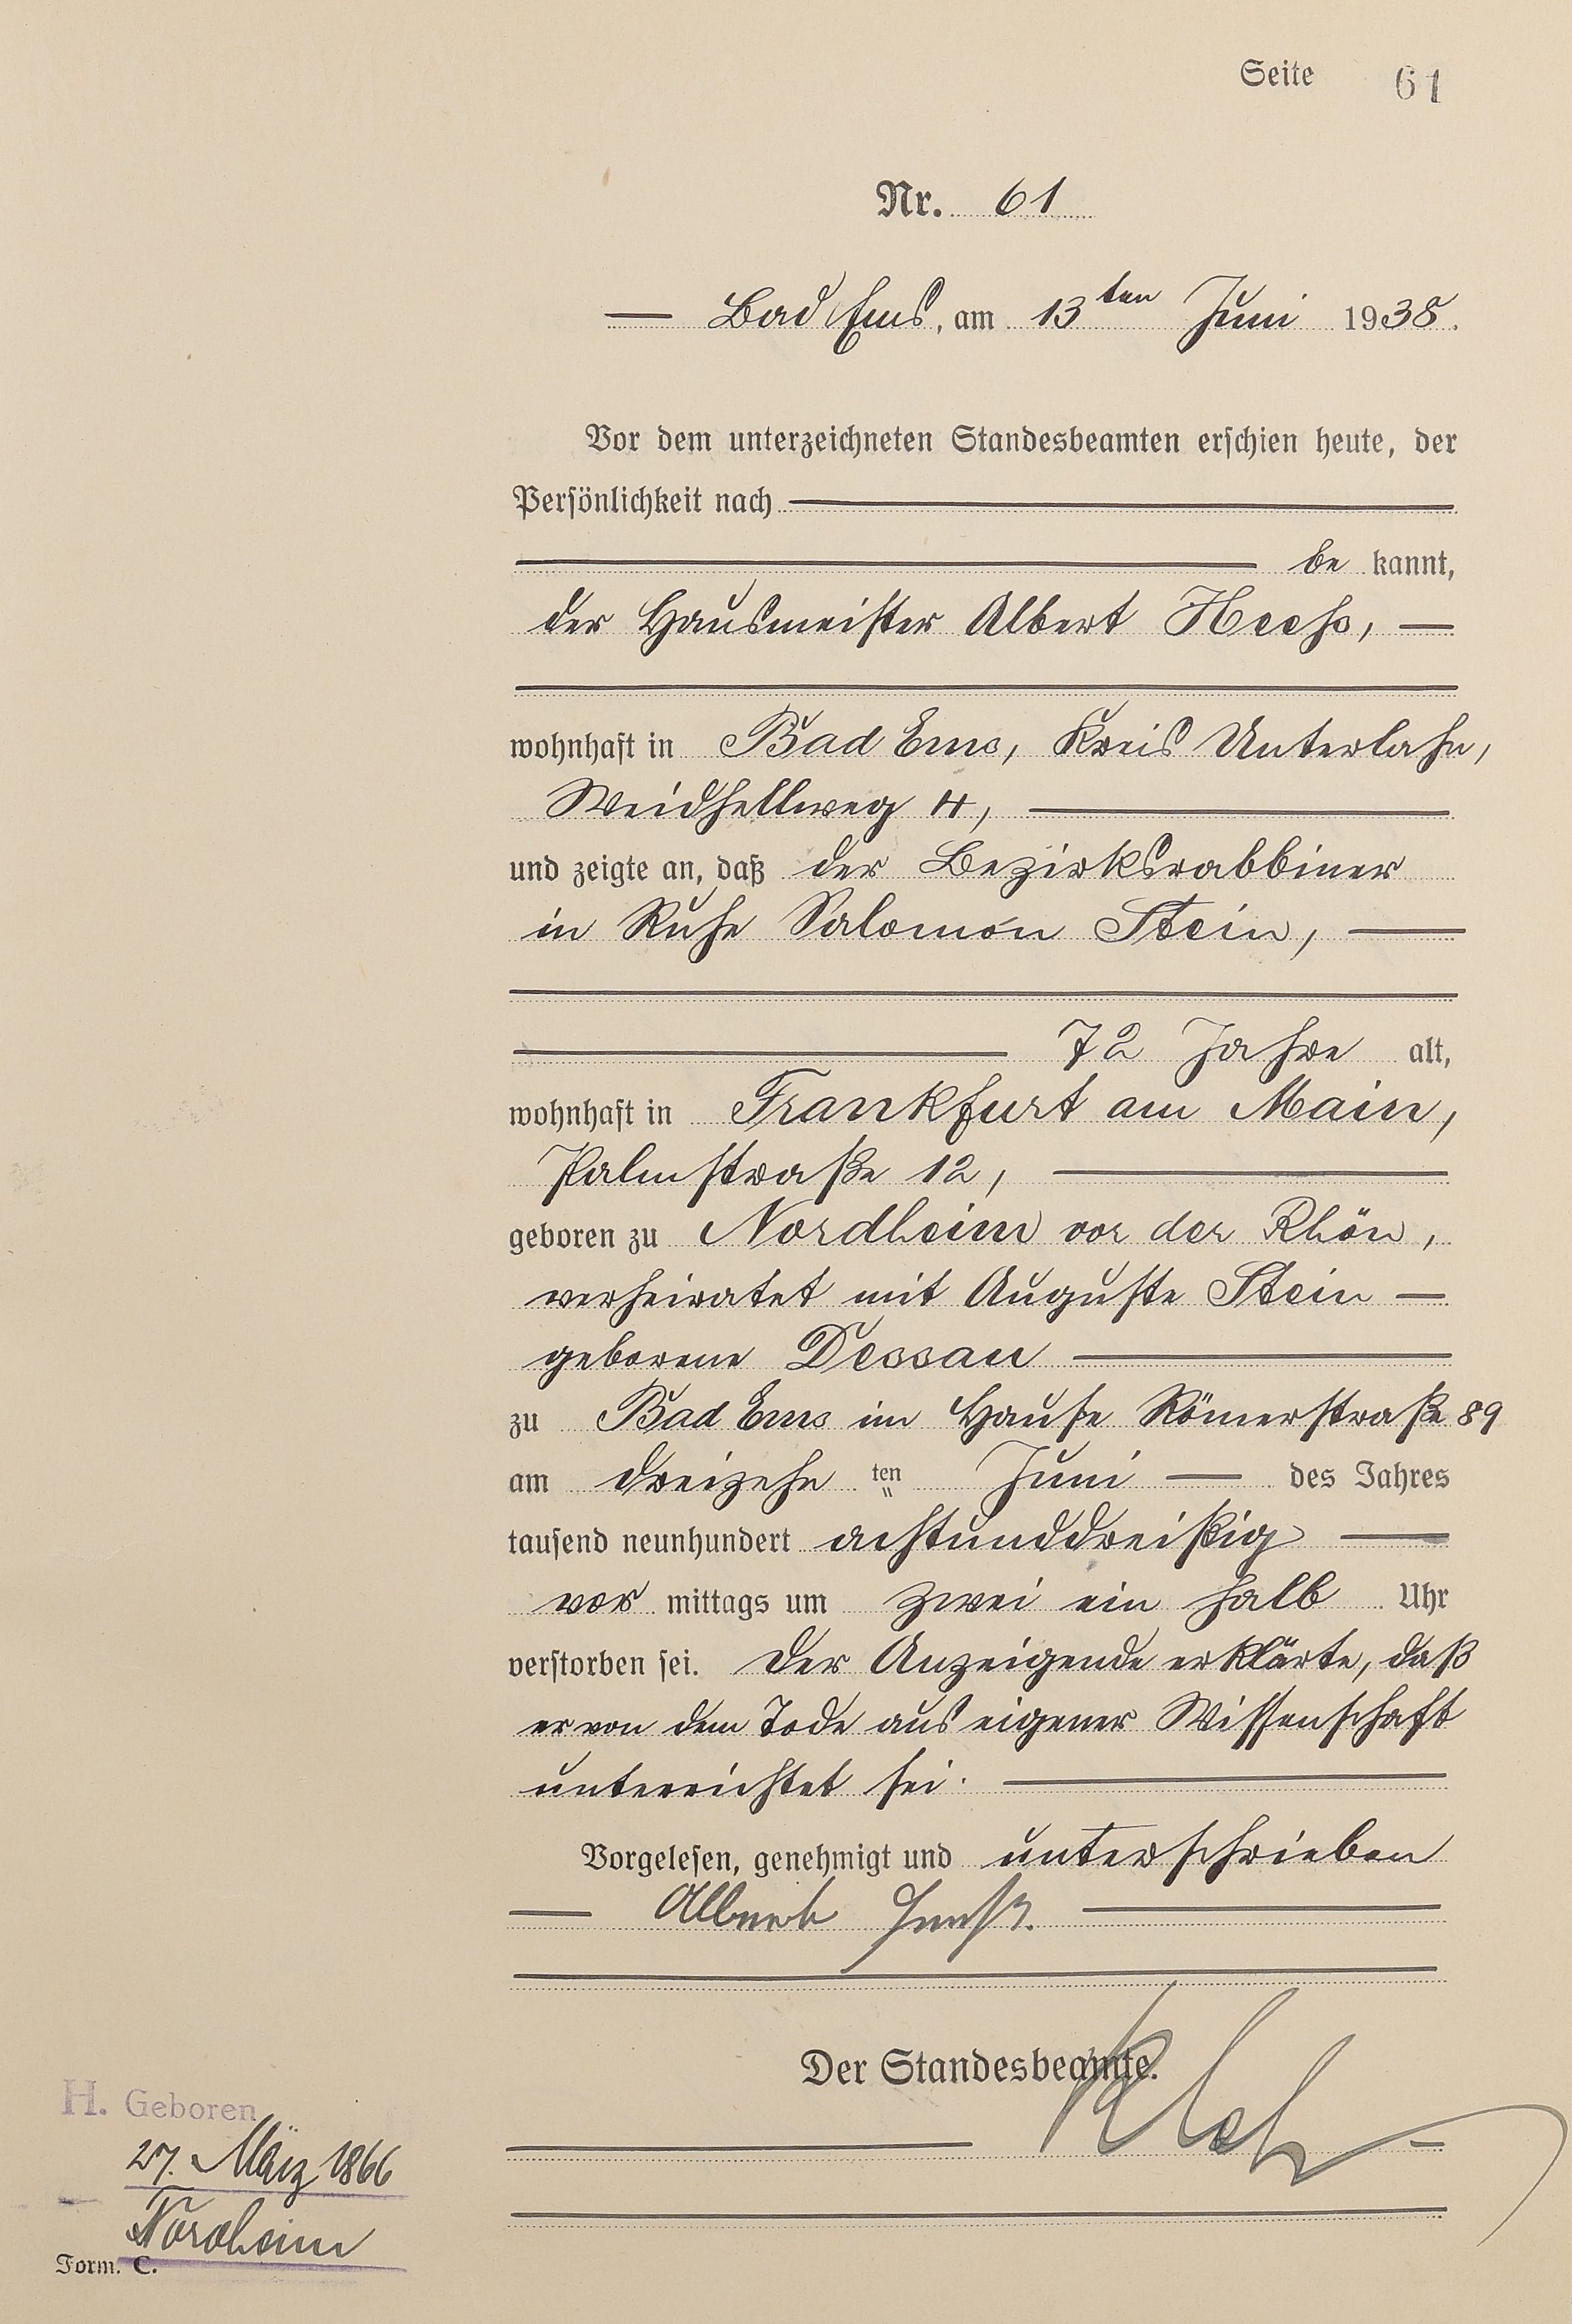 Seite 61
Nr. 61
— Bad Ems, am 13ten Juni 1938.
Vor dem unterzeichneten Standesbeamten erschien heute, der
Persönlichkeit nach
be kannt,
der Hausmeister Albert Heeß, —
wohnhaft in Bad Ems, Kreis Unterlahn,
Weidhellweg 4,
und zeigte an, daß der Bezirksrabbiner
in Ruhe Salomon Stein, —
72 Jahre alt,
wohnhaft in Frankfurt am Main,
Palmstraße 12,
geboren zu Nordheim vor der Rhön,
verheiratet mit Auguste Stein —
geborene Dessau
zu Bad Ems im Hause Römerstraße 89
am dreizehn ten Juni — des Jahres
tausend neunhundert achtunddreißig —
vor mittags um zwei ein halb Uhr
verstorben sei. Der Anzeigende erklärte, daß
er von dem Tode aus eigener Wissenschaft
unterrichtet sei.
Vorgelesen, genehmigt und unterschrieben
— Albert Heeß.
Der Standesbeamte.
H. Geboren
27. März 1866
Nordheim
Form. C.